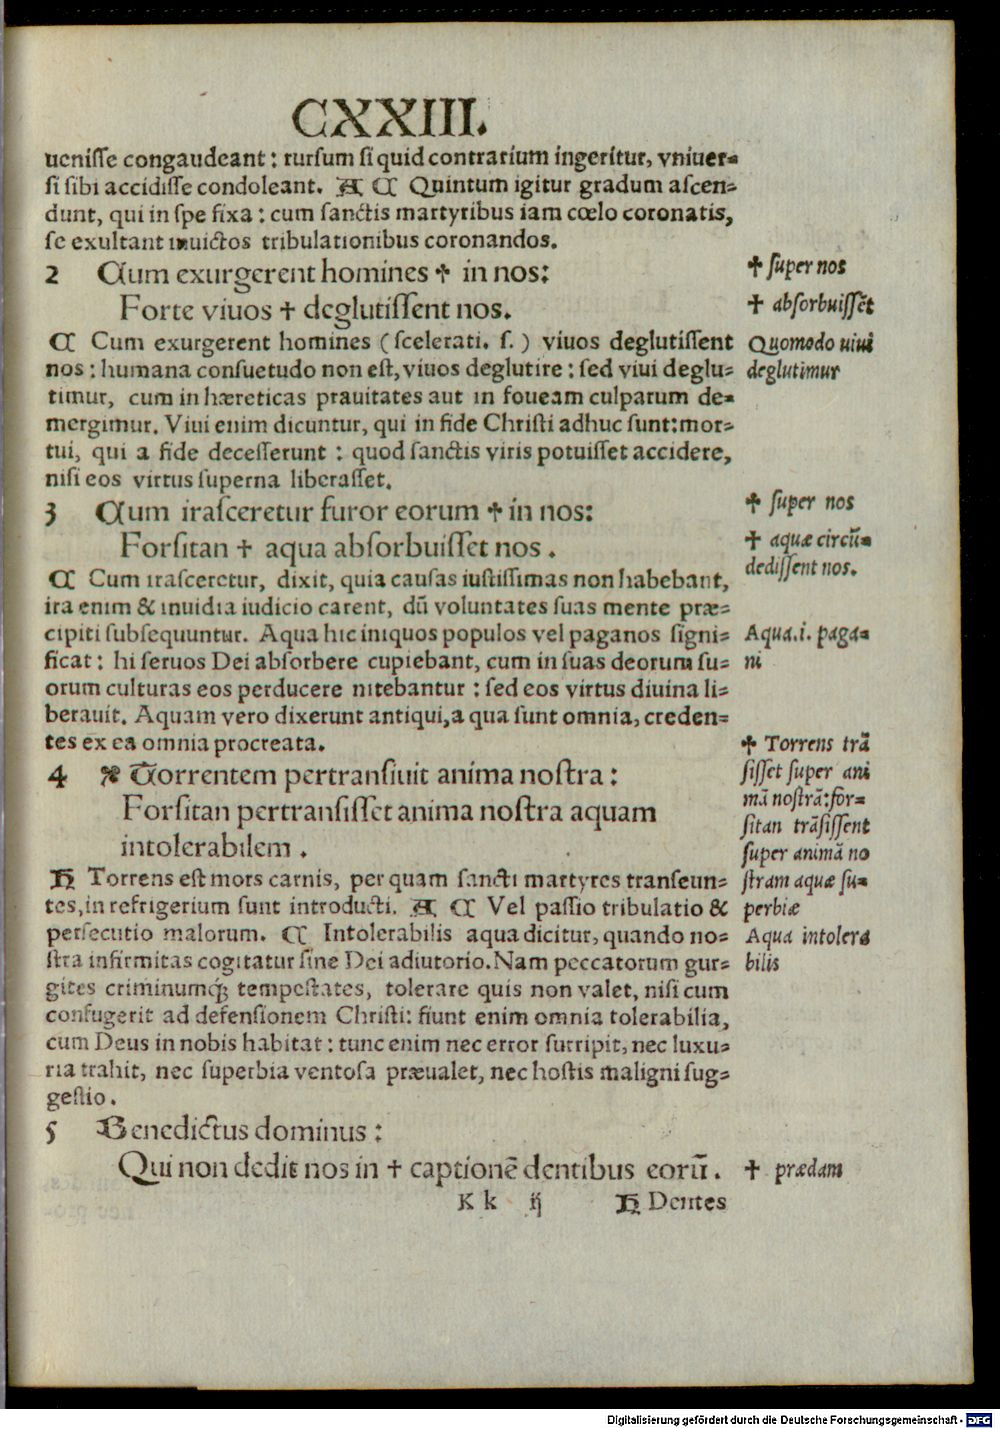 CXXIII.
uenisse congaudeant: rursum si quid contrarium ingeritur, vniuer=
si sibi accidisse condoleant. A C Quintum igitur gradum ascen=
dunt, qui in spe fixa: cum sanctis martyribus iam cœlo coronatis,
se exultant inuictos tribulationibus coronandos.
2 Cum exurgerent homines ✝ in nos:
✝ super nos
Forte viuos ✝ deglutissent nos.
✝ absorbuissẽt
C Cum exurgerent homines (scelerati. s.) viuos deglutissent
Quomodo uiui
nos: humana consuetudo non est, viuos deglutire: sed viui deglu=
deglutimur
timur, cum in hæreticas prauitates aut in foueam culparum de=
mergimur. Viui enim dicuntur, qui in fide Christi adhuc sunt: mor=
tui, qui a fide decesserunt: quod sanctis viris potuisset accidere,
nisi eos virtus superna liberasset.
3 Cum irasceretur furor eorum ✝ in nos:
✝ super nos
Forsitan ✝ aqua absorbuisset nos.
✝ aquæ circũ=
dedissent nos.
C Cum irasceretur, dixit, quia causas iustissimas non habebant,
ira enim & inuidia iudicio carent, dũ voluntates suas mente præ=
cipiti subsequuntur. Aqua hic iniquos populos vel paganos signi=
Aqua .i. paga=
ficat: hi seruos Dei absorbere cupiebant, cum in suas deorum su=
ni
orum culturas eos perducere nitebantur: sed eos virtus diuina li=
berauit. Aquam vero dixerunt antiqui, a qua sunt omnia, creden=
tes ex ea omnia procreata.
✝ Torrens trã
4 ✠ Torrentem pertransiuit anima nostra:
sisset super ani
mã nostrã: for=
Forsitan pertransisset anima nostra aquam
sitan trãsissent
intolerabilem.
super animã no
H Torrens est mors carnis, per quam sancti martyres transeun=
stram aquæ su=
tes, in refrigerium sunt introducti. A C Vel passio tribulatio &
perbiæ
persecutio malorum. C Intolerabilis aqua dicitur, quando no=
Aqua intolera
stra infirmitas cogitatur sine Dei adiutorio. Nam peccatorum gur=
bilis
gites criminumq́; tempestates, tolerare quis non valet, nisi cum
confugerit ad defensionem Christi: fiunt enim omnia tolerabilia,
cum Deus in nobis habitat: tunc enim nec error surripit, nec luxu=
ria trahit, nec superbia ventosa præualet, nec hostis maligni sug=
gestio.
5 Benedictus dominus:
Qui non dedit nos in ✝ captionẽ dentibus eorũ.
✝ prædam
K k ij H Dentes
Digitalisierung gefördert durch die Deutsche Forschungsgemeinschaft - DFG